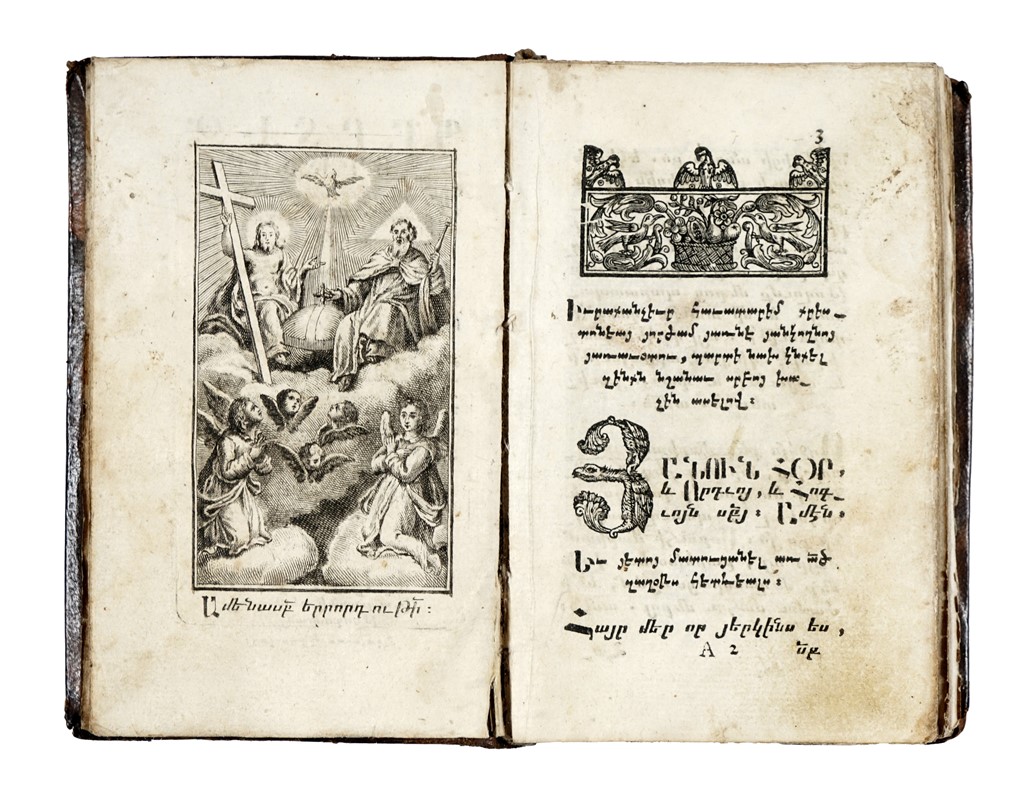 Ամենասբ երրորդութի :
3
Իւրաքանչիւր հաւատարիմ քրիս_
տոնէայ յորժամ յառնէ յանկողնոյ
յառաւօտու , պարտի նախ կնքել
զինքն նշանաւ սրբոյ խա_
չին ասելով :
ՅԱՆՈՒՆ ՀՕՐ ,
և Որդւոյ , և Հոգ_
ւոյն սբյ : Ամէն .
Եւ յետոյ մատուցանել առ ած
զաղօթս հետևեալս :
Հայր մեր որ յերկինս ես ,
A 2 սբ